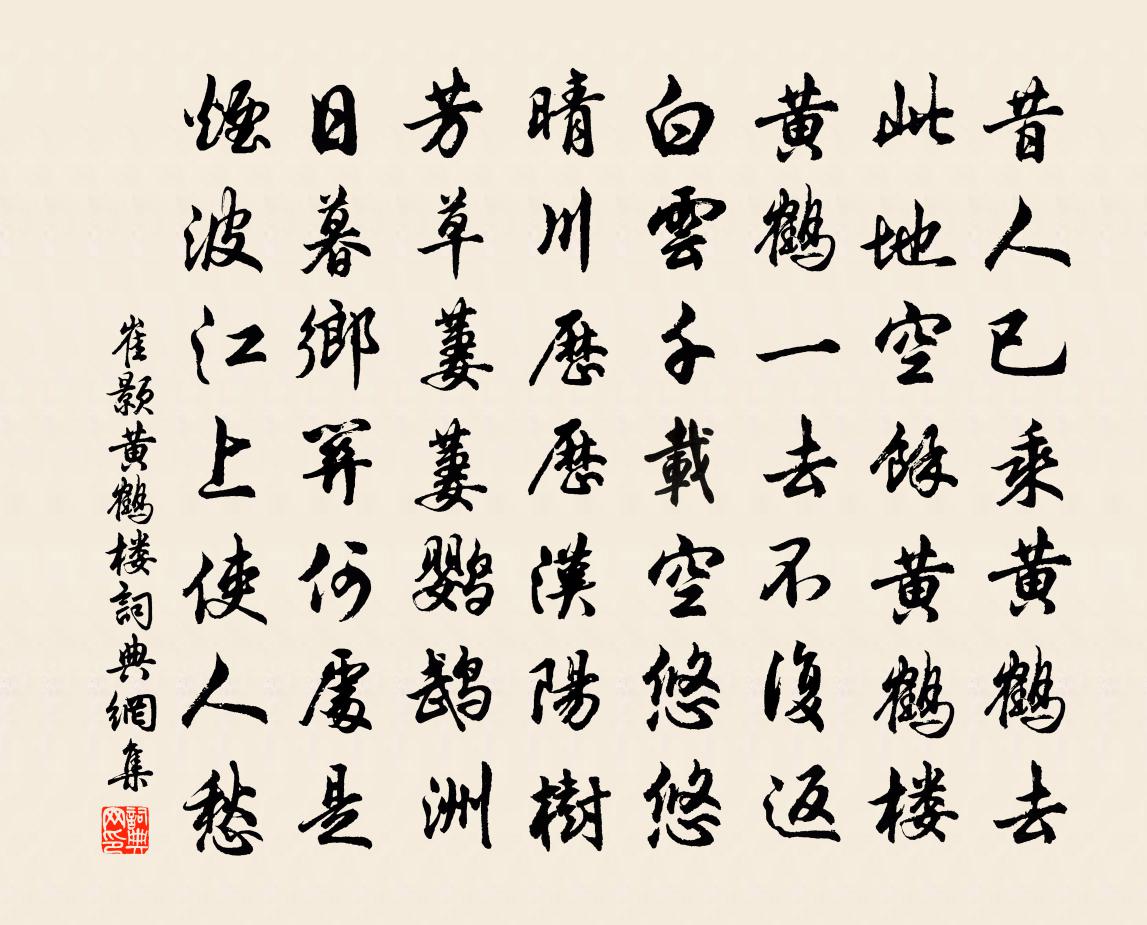 昔人已乘黃鶴去
此地空餘黃鶴楼
黃鶴一去不復返
白雲千載空悠悠
晴川歷歷漢陽樹
芳草萋萋鸚鵡洲
日暮鄉關何處是
煙波江上使人愁
崔顥黃鶴楼詞典網集
詞典网印